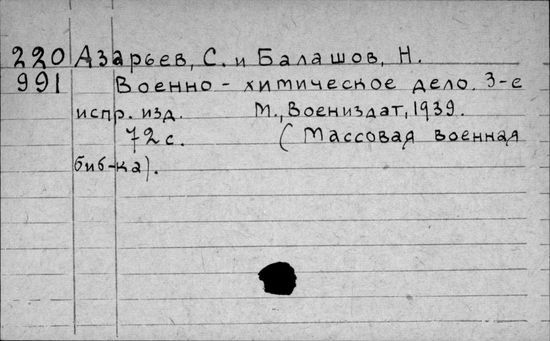 220 Азарьев, С. и Балашов, Н.
991 Военно-химическое дело. 3-е
испр. изд. М., Воениздат, 1939.
72 с. (Массовая военная
биб-ка).